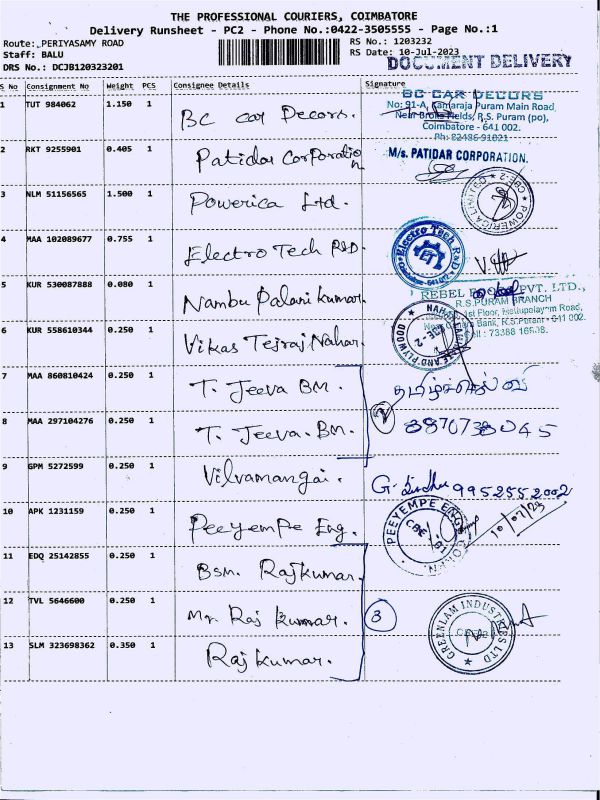 THE PROFESSIONAL COURIERS, COIMBATORE
Delivery Runsheet - PC2 - Phone No.:0422-3505555 - Page No.:1
Route: PERIYASAMY ROAD
RS No.: 1203232
Staff: BALU
RS Date: 10-Jul-2023
DRS No.: DCJB120323201
DOCUMENT DELIVERY
S No Consignment No Weight PCS Consignee Details Signature
1 TUT 984062 1.150 1 BC Car Decors.
BC CAR DECORS
No: 91-A, Kamaraja Puram Main Road,
Near Broke Fields, R.S. Puram (po),
Coimbatore - 641 002.
Ph: 82486-91021
2 RKT 9255901 0.405 1 Patidar Corporation
M/s. PATIDAR CORPORATION.
3 NLM 51156565 1.500 1 Powerica Ltd.
POWERICA LIMITED ★ CBE-2 ★
4 MAA 102089677 0.755 1 Electro Tech R&D.
Electro Tech R&D
ET
5 KUR 530087888 0.080 1 Nambu Palani Kumar.
REBEL PVT. LTD.,
R.S.PURAM BRANCH
1st Floor, Road,
Bank, R.S.Puram - 641 002.
6 KUR 558610344 0.250 1 Vikas Tejraj Nahar.
NAHAR AND PLYWOOD ★ CBE-2 ★
7 MAA 860810424 0.250 1 T. Jeeva BM.
தமிழ்ச்செல்வி
8 MAA 297104276 0.250 1 T. Jeeva. BM.
2 8870738045
9 GPM 5272599 0.250 1 Vilvamangai.
G. Sindhu 9952552002
10 APK 1231159 0.250 1 Peeyempe Eng.
PEEYEMPE ENGG
10/07/23
11 EDQ 25142855 0.250 1 BSM. Rajkumar.
12 TVL 5646600 0.250 1 Mr. Raj Kumar.
3
GREENLAM INDUSTRIES LTD
13 SLM 323698362 0.350 1 Raj Kumar.